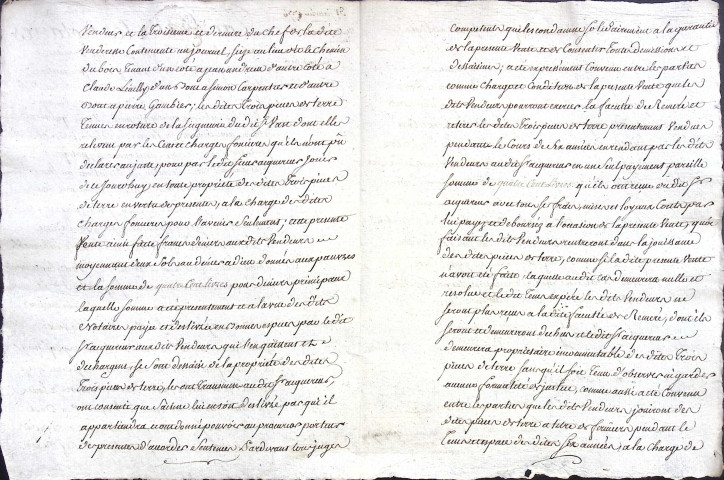 Vendues et la Troisieme et derniere du chef de la dite
Venderesse Contenante un journel, siize au lieu dit le chemin
du bois, Tenant d'un côté a jean andrieu d'autre côté a
Claude Lieully d'un bout a Simon Carpentier et d'autre
bout a pierre Gambier; les dites Trois pieces de terre
Tenues en roture de la Seigneurie du dit St Vast dont elles
relevent par les Cens et Charges foncieres qu'ils n'ont pû
declarer au juste, pour par le dit sieur acquereur jouir
de ce jourd'huy en toute propriété des dites Trois pieces
de terre en vertu des presentes, a la charge des dites
charges foncieres pour l'avenir Seulement, cette presente
Vente ainsi faite francs deniers aux dits Vendeurs
moyennant deux Sols au denier a dieu donnés aux pauvres
et la Somme de quatre Cent Livres pour deniers principaux
laquelle Somme a été presentement et en la vue des dits
Notaires payée et delivrée en bonnes especes par le dit
Sr acquereur aux dits Vendeurs, qui l'en quittent et
dechargent, se Sont dessaisi de la propriété des dites
Trois pieces de terre, les ont Transmis au dit Sr acquereur,
ont consenti que Saisine lui en soit delivrée par qu'il
appartiendra et ont donné pouvoir au procureur porteur
des presentes d'accorder Sentences Pardevant tous juges
competents qui les condamne solidairement a la garantie
de la presente Vente et de Consentir Toute demission et
dessaisine; a été expressement Convenu entre les parties
comme Charge et Condition de la presente Vente que les
dits Vendeurs pourront exercer la faculté de Remeré et
retirer les dites Trois pieces de terre presentement Vendues
pendant le Cours de Six années en rendant par les dits
Vendeurs au dit Sr acquereur en un seul payement pareille
Somme de quatre Cent Livres qu'ils ont reçue du dit Sr
acquereur avec tous Ses frais, mises et loyaux Couts par
lui payez et deboursez a l'occasion de la presente Vente; quoi
faisant les dits Vendeurs rentreront dans la jouissance
des dites pieces de terre, comme si la dite presente Vente
n'avoit été faite, laquelle au dit cas demeurera nulle et
resolue et le dit Tems expiré les dits Vendeurs ne
Seront plus reçus a la dite faculté de Remeré, dont ils
Seront et demeureront dechus et le dit Sr acquereur en
demeurera propriétaire incommutable des dites Trois
pieces de terre sans qu'il soit Tenu d'observer ni garder
aucune formalité de justice, comme aussi a été Convenu
entre les parties que les dits Vendeurs jouiront des
dites pieces de terre a titre de fermiers pendant le
Tems et espace des dites Six années, a la charge de